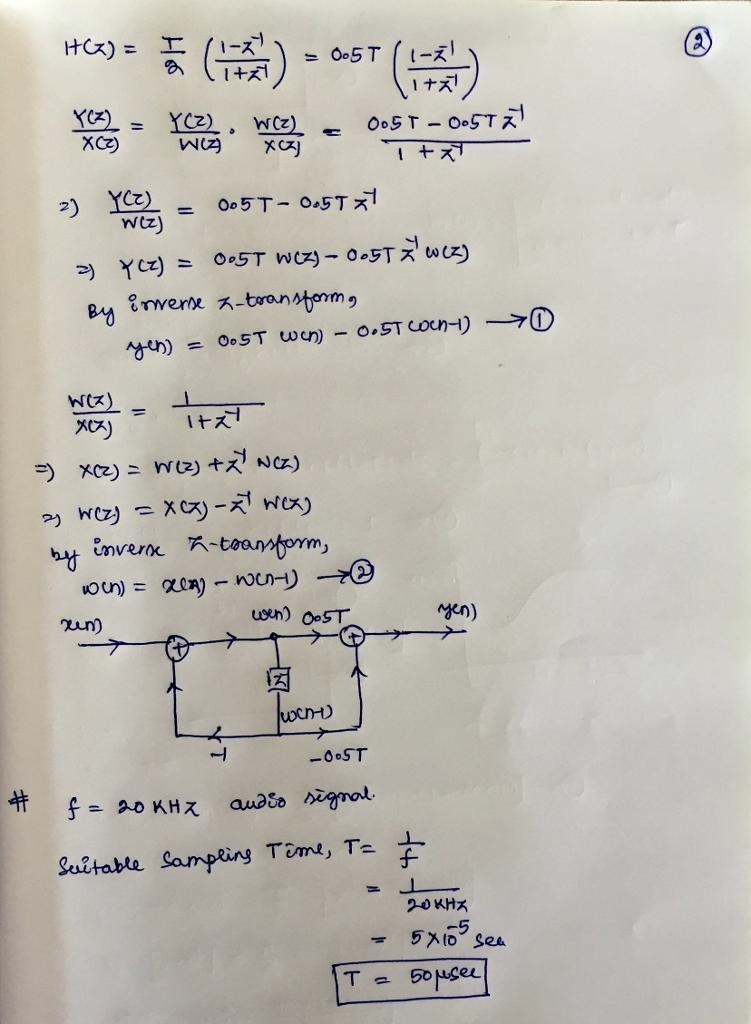 ②
H(z) = T/2 ( (1-z⁻¹)/(1+z⁻¹) ) = 0.5T ( (1-z⁻¹)/(1+z⁻¹) )
Y(z)/X(z) = Y(z)/W(z) . W(z)/X(z) = (0.5T - 0.5T z⁻¹)/(1 + z⁻¹)
=) Y(z)/W(z) = 0.5T - 0.5T z⁻¹
=) Y(z) = 0.5T W(z) - 0.5T z⁻¹ W(z)
By inverse z-transform,
y(n) = 0.5T w(n) - 0.5T w(n-1) → ①
W(z)/X(z) = 1/(1+z⁻¹)
=) X(z) = W(z) + z⁻¹ W(z)
=) W(z) = X(z) - z⁻¹ W(z)
by inverse z-transform,
w(n) = x(n) - w(n-1) → ②
x(n) + w(n) 0.5T + y(n)
w(n-1)
-1 -0.5T
# f = 20 KHz audio signal.
Suitable Sampling Time, T = 1/f
= 1/20KHz
= 5×10⁻⁵ sec
T = 50μsec